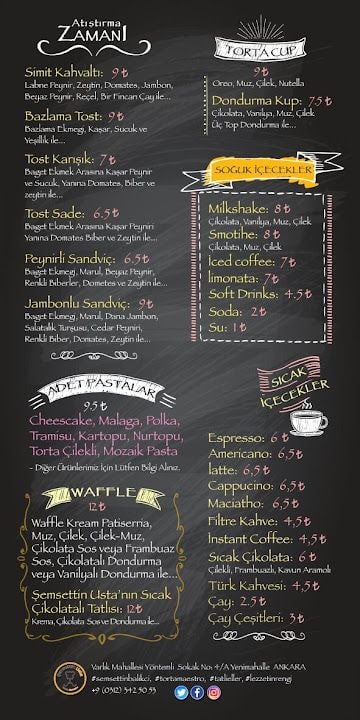 Atıştırma
ZAMANI
Simit Kahvaltı: 9 ₺
Labne Peynir, Zeytin, Domates, Jambon,
Beyaz Peynir, Reçel, Bir Fincan Çay ile...
Bazlama Tost: 9 ₺
Bazlama Ekmegi, Kaşar, Sucuk ve
Yeşillik ile...
Tost Karışık: 7 ₺
Baget Ekmek Arasına Kaşar Peynir
ve Sucuk, Yanına Domates, Biber ve
zeytin ile...
Tost Sade: 6.5 ₺
Baget Ekmek Arasına Kaşar Peyniri
Yanına Domates Biber ve Zeytin ile...
Peynirli Sandviç: 6,5 ₺
Baget Ekmegi, Marul, Beyaz Peynir,
Renkli Biberler, Dometes ve Zeytin ile...
Jambonlu Sandviç: 9 ₺
Baget Ekmegi, Marul, Dana Jambon,
Salatalik Turşusu, Cedar Peyniri,
Renkli Biber, Dometes, Zeytin ile...
ADET PASTALAR
9,5 ₺
Cheescake, Malaga, Polka,
Tramisu, Kartopu, Nurtopu,
Torta Çilekli, Mozaik Pasta
- Diğer Ürünlerimiz İçin Lütfen Bilgi Alınız.
WAFFLE
12 ₺
Waffle Kream Patiserria,
Muz, Çilek, Çilek-Muz,
Çikolata Sos veya Frambuaz
Sos, Çikolatalı Dondurma
veya Vanilyalı Dondurma ile...
Şemsettin Usta'nın Sıcak
Çikolatalı Tatlısı: 12 ₺
Krema, Çikolata Sos ve Dondurma ile...
TORTA CUP
9 ₺
Oreo, Muz, Çilek, Nutella
Dondurma Kup: 7.5 ₺
Çikolata, Vanilya, Muz, Çilek
Üç Top Dondurma ile...
SOĞUK İÇECEKLER
Milkshake: 8 ₺
Çikolata, Vanilya, Muz, Çilek
Smotihe: 8 ₺
Çikolata, Muz, Çilek
İced coffee: 7 ₺
limonata: 7 ₺
Soft Drinks: 4.5 ₺
Soda: 2 ₺
Su: 1 ₺
SICAK
İÇECEKLER
Espresso: 6 ₺
Americano: 6,5 ₺
latte: 6,5 ₺
Cappucino: 6,5 ₺
Maciatho: 6,5 ₺
Filtre Kahve: 4,5 ₺
İnstant Coffee: 4,5 ₺
Sıcak Çikolata: 6 ₺
Çilekli, Frambuazlı, Kavun Aramolı
Türk Kahvesi: 4,5 ₺
Çay: 2.5 ₺
Çay Çeşitleri: 3 ₺
Varlık Mahallesi Yöntemli Sokak No: 4/A Yenimahalle ANKARA
#semsettinbalikci, #tortamaestro, #tatlieller, #lezzetinrengi
+9 (0312) 342 50 55